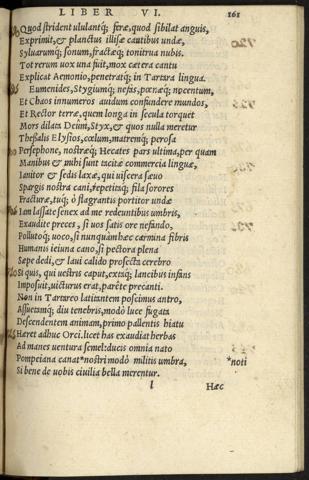 LIBER VI. 161
Quod strident ululantq; feræ, quod sibilat anguis,
Exprimit, & planctus illisæ cautibus undæ,
Syluarumq; sonum, fractæq; tonitrua nubis.
Tot rerum uox una fuit, mox cætera cantu
Explicat Aemonio, penetratq; in Tartara lingua.
Eumenides, Stygiumq; nefas, pœnæq; nocentum,
Et Chaos innumeros auidum confundere mundos,
Et Rector terræ, quem longa in secula torquet
Mors dilata Deûm, Styx, & quos nulla meretur
Thessalis Elysios, cœlum, matremq; perosa
Persephone, nostræq; Hecates pars ultima, per quam
Manibus & mihi sunt tacitæ commercia linguæ,
Ianitor & sedis laxæ, qui uiscera sæuo
Spargis nostra cani, repetitaq; fila sorores
Fracturæ, tuq; ô flagrantis portitor undæ
Iam lassate senex ad me redeuntibus umbris,
Exaudite preces, si uos satis ore nefando,
Pollutoq; uoco, si nunquàm hæc carmina fibris
Humanis ieiuna cano, si pectora plena
Sepe dedi, & laui calido prosecta cerebro
Si quis, qui uestris caput, extaq; lancibus infans
Imposuit, uicturus erat, parête precanti.
Non in Tartareo latitantem poscimus antro,
Assuetamq; diu tenebris, modò luce fugata
Descendentem animam, primo pallentis hiatu
Hæret adhuc Orci. licet has exaudiat herbas
Ad manes uentura semel: ducis omnia nato
Pompeiana canat *nostri modò militis umbra, *noti
Si bene de uobis ciuilia bella merentur.
l Hæc